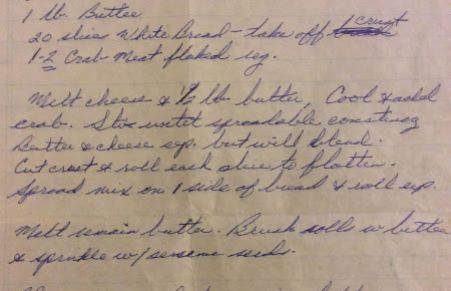 1 lb. Butter
20 slices White Bread - take off crust
1-2 Crab Meat flaked reg.
Melt cheese & 1/2 lb butter, Cool & add
crab. Stir until spreadable consistency
Butter & cheese sep. but will blend.
Cut crust & roll each slice to flatten.
Spread mix on 1 side of bread & roll up.
Melt remain butter. Brush rolls w butter
& sprinkle w/ sesame seeds.